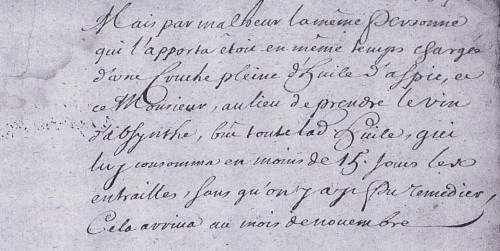 Mais par malheur la même Personne
qui l'apporta étoit en même temps chargée
d'une Cruche pleine d'huile d'aspic, et
ce Monsieur, au lieu de prendre le vin
d'absynthe, but toute lad. huile, qui
luy consomma en moins de 15. Jours les
entrailles, sans qu'on y ayt pu remedier,
Cela arriva au mois de novembre